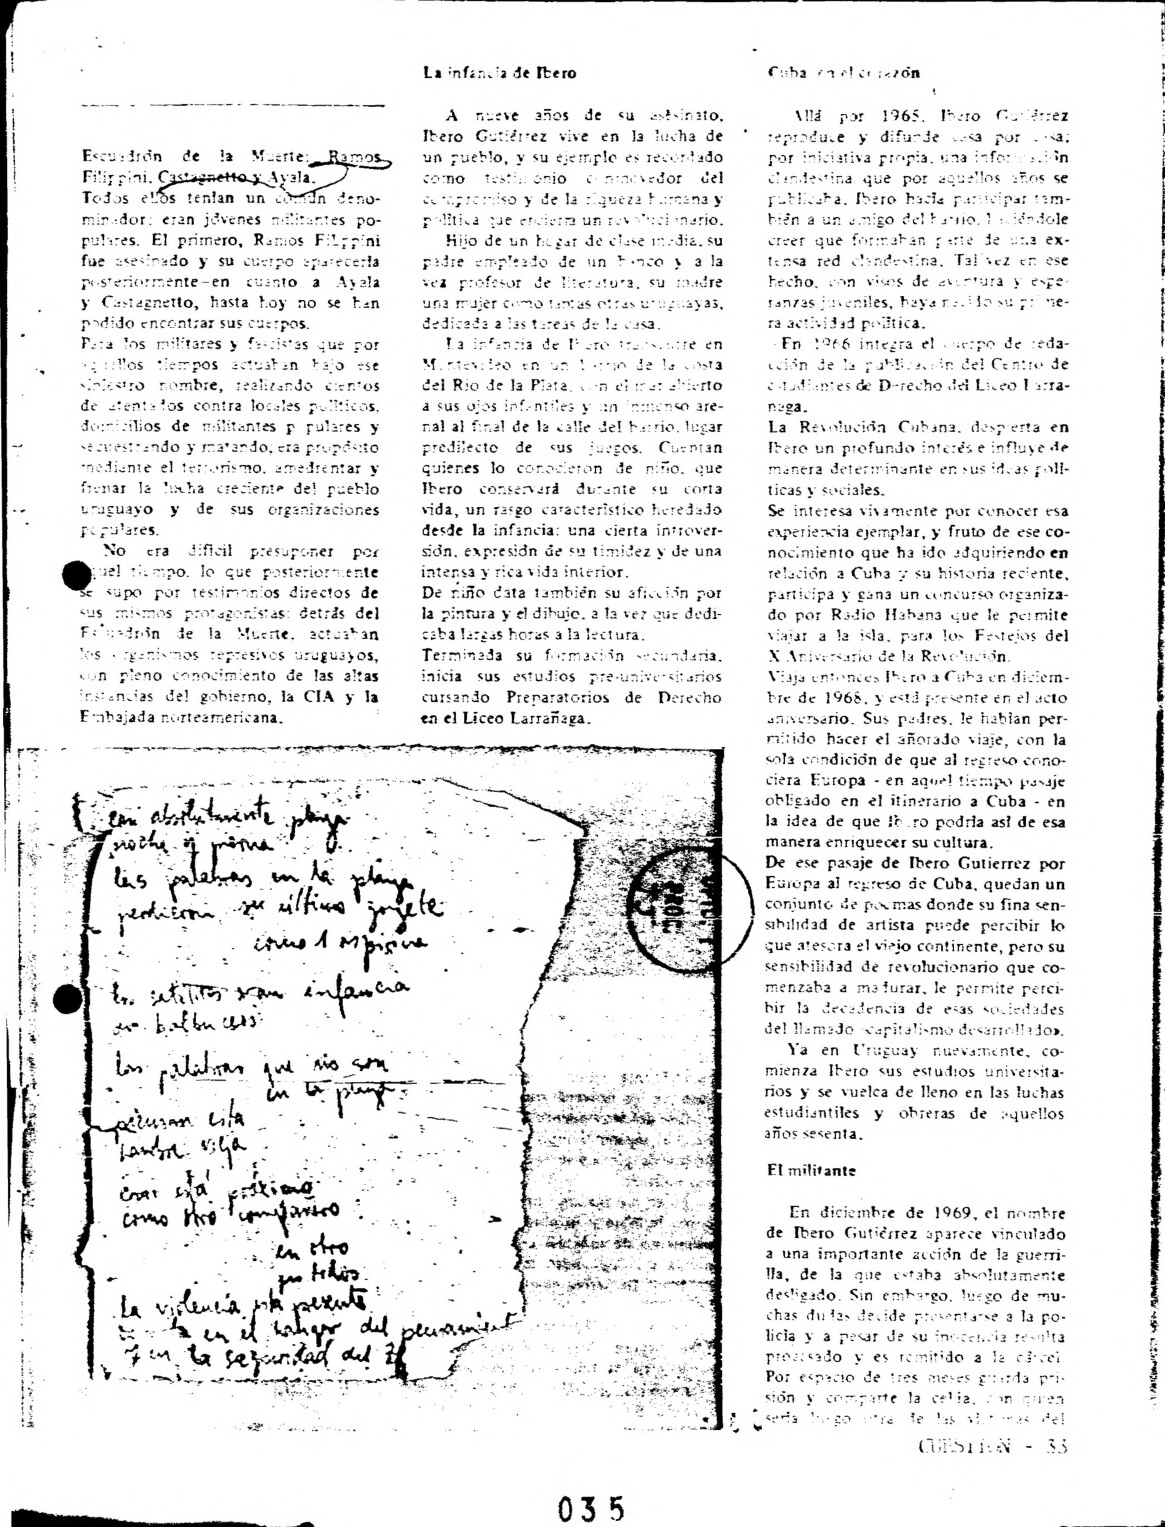 Escuadrón de la Muerte: Ramos
Filippini, Castagnetto y Ayala.
Todos ellos tenían un común deno-
minador: eran jóvenes militantes po-
pulares. El primero, Ramos Filippini
fue asesinado y su cuerpo aparecería
posteriormente-en cuanto a Ayala
y Castagnetto, hasta hoy no se han
podido encontrar sus cuerpos.
Para los militares y fascistas que por
aquellos tiempos actuaban bajo ese
siniestro nombre, realizando cientos
de atentados contra locales políticos,
domicilios de militantes populares y
secuestrando y matando, era propósito
mediante el terrorismo, amedrentar y
frenar la lucha creciente del pueblo
uruguayo y de sus organizaciones
populares.
No era difícil presuponer por
aquel tiempo, lo que posteriormente
se supo por testimonios directos de
sus mismos protagonistas: detrás del
Escuadrón de la Muerte, actuaban
los organismos represivos uruguayos,
con pleno conocimiento de las altas
instancias del gobierno, la CIA y la
Embajada norteamericana.
La infancia de Ibero
A nueve años de su asesinato,
Ibero Gutiérrez vive en la lucha de
un pueblo, y su ejemplo es recordado
como testimonio conmovedor del
compromiso y de la riqueza humana y
política que encierra un revolucionario.
Hijo de un hogar de clase media, su
padre empleado de un banco y a la
vez profesor de literatura, su madre
una mujer como tantas otras uruguayas,
dedicada a las tareas de la casa.
La infancia de Ibero transcurre en
Montevideo en un barrio de la costa
del Río de la Plata, con el mar abierto
a sus ojos infantiles y un inmenso are-
nal al final de la calle del barrio, lugar
predilecto de sus juegos. Cuentan
quienes lo conocieron de niño, que
Ibero conservará durante su corta
vida, un rasgo característico heredado
desde la infancia: una cierta introver-
sión, expresión de su timidez y de una
intensa y rica vida interior.
De niño data también su afición por
la pintura y el dibujo, a la vez que dedi-
caba largas horas a la lectura.
Terminada su formación secundaria,
inicia sus estudios pre-universitarios
cursando Preparatorios de Derecho
en el Liceo Larrañaga.
con absolutamente playa
noche y
las palabras en la playa
perdieron su último
como
infancia
las palabras que no son
en la playa
esta
vieja
está próximo
como otro compañero
en otro
en todos
la violencia está presente
en el hangar del pensamiento
y en la seguridad del
Cuba en el corazón
Allá por 1965, Ibero Gutiérrez
reproduce y difunde casa por casa;
por iniciativa propia, una información
clandestina que por aquellos años se
publicaba. Ibero hacía participar tam-
bién a un amigo del barrio, haciéndole
creer que formaban parte de una ex-
tensa red clandestina. Tal vez en ese
hecho, con visos de aventura y espe-
ranzas juveniles, haya nacido su prime-
ra actividad política.
En 1966 integra el cuerpo de redac-
ción de la publicación del Centro de
estudiantes de Derecho del Liceo Larra-
ñaga.
La Revolución Cubana, despierta en
Ibero un profundo interés e influye de
manera determinante en sus ideas polí-
ticas y sociales.
Se interesa vivamente por conocer esa
experiencia ejemplar, y fruto de ese co-
nocimiento que ha ido adquiriendo en
relación a Cuba y su historia reciente,
participa y gana un concurso organiza-
do por Radio Habana que le permite
viajar a la isla, para los Festejos del
X Aniversario de la Revolución.
Viaja entonces Ibero a Cuba en diciem-
bre de 1968, y está presente en el acto
aniversario. Sus padres, le habían per-
mitido hacer el añorado viaje, con la
sola condición de que al regreso cono-
ciera Europa - en aquel tiempo pasaje
obligado en el itinerario a Cuba - en
la idea de que Ibero podría así de esa
manera enriquecer su cultura.
De ese pasaje de Ibero Gutierrez por
Europa al regreso de Cuba, quedan un
conjunto de poemas donde su fina sen-
sibilidad de artista puede percibir lo
que atesora el viejo continente, pero su
sensibilidad de revolucionario que co-
menzaba a madurar, le permite perci-
bir la decadencia de esas sociedades
del llamado «capitalismo desarrollado».
Ya en Uruguay nuevamente, co-
mienza Ibero sus estudios universita-
rios y se vuelca de lleno en las luchas
estudiantiles y obreras de aquellos
años sesenta.
El militante
En diciembre de 1969, el nombre
de Ibero Gutiérrez aparece vinculado
a una importante acción de la guerri-
lla, de la que estaba absolutamente
desligado. Sin embargo, luego de mu-
chas dudas decide presentarse a la po-
licía y a pesar de su inocencia resulta
procesado y es remitido a la cárcel.
Por espacio de tres meses guarda pri-
sión y comparte la celda, con quien
sería luego otra de las víctimas del
CUESTION - 33
035